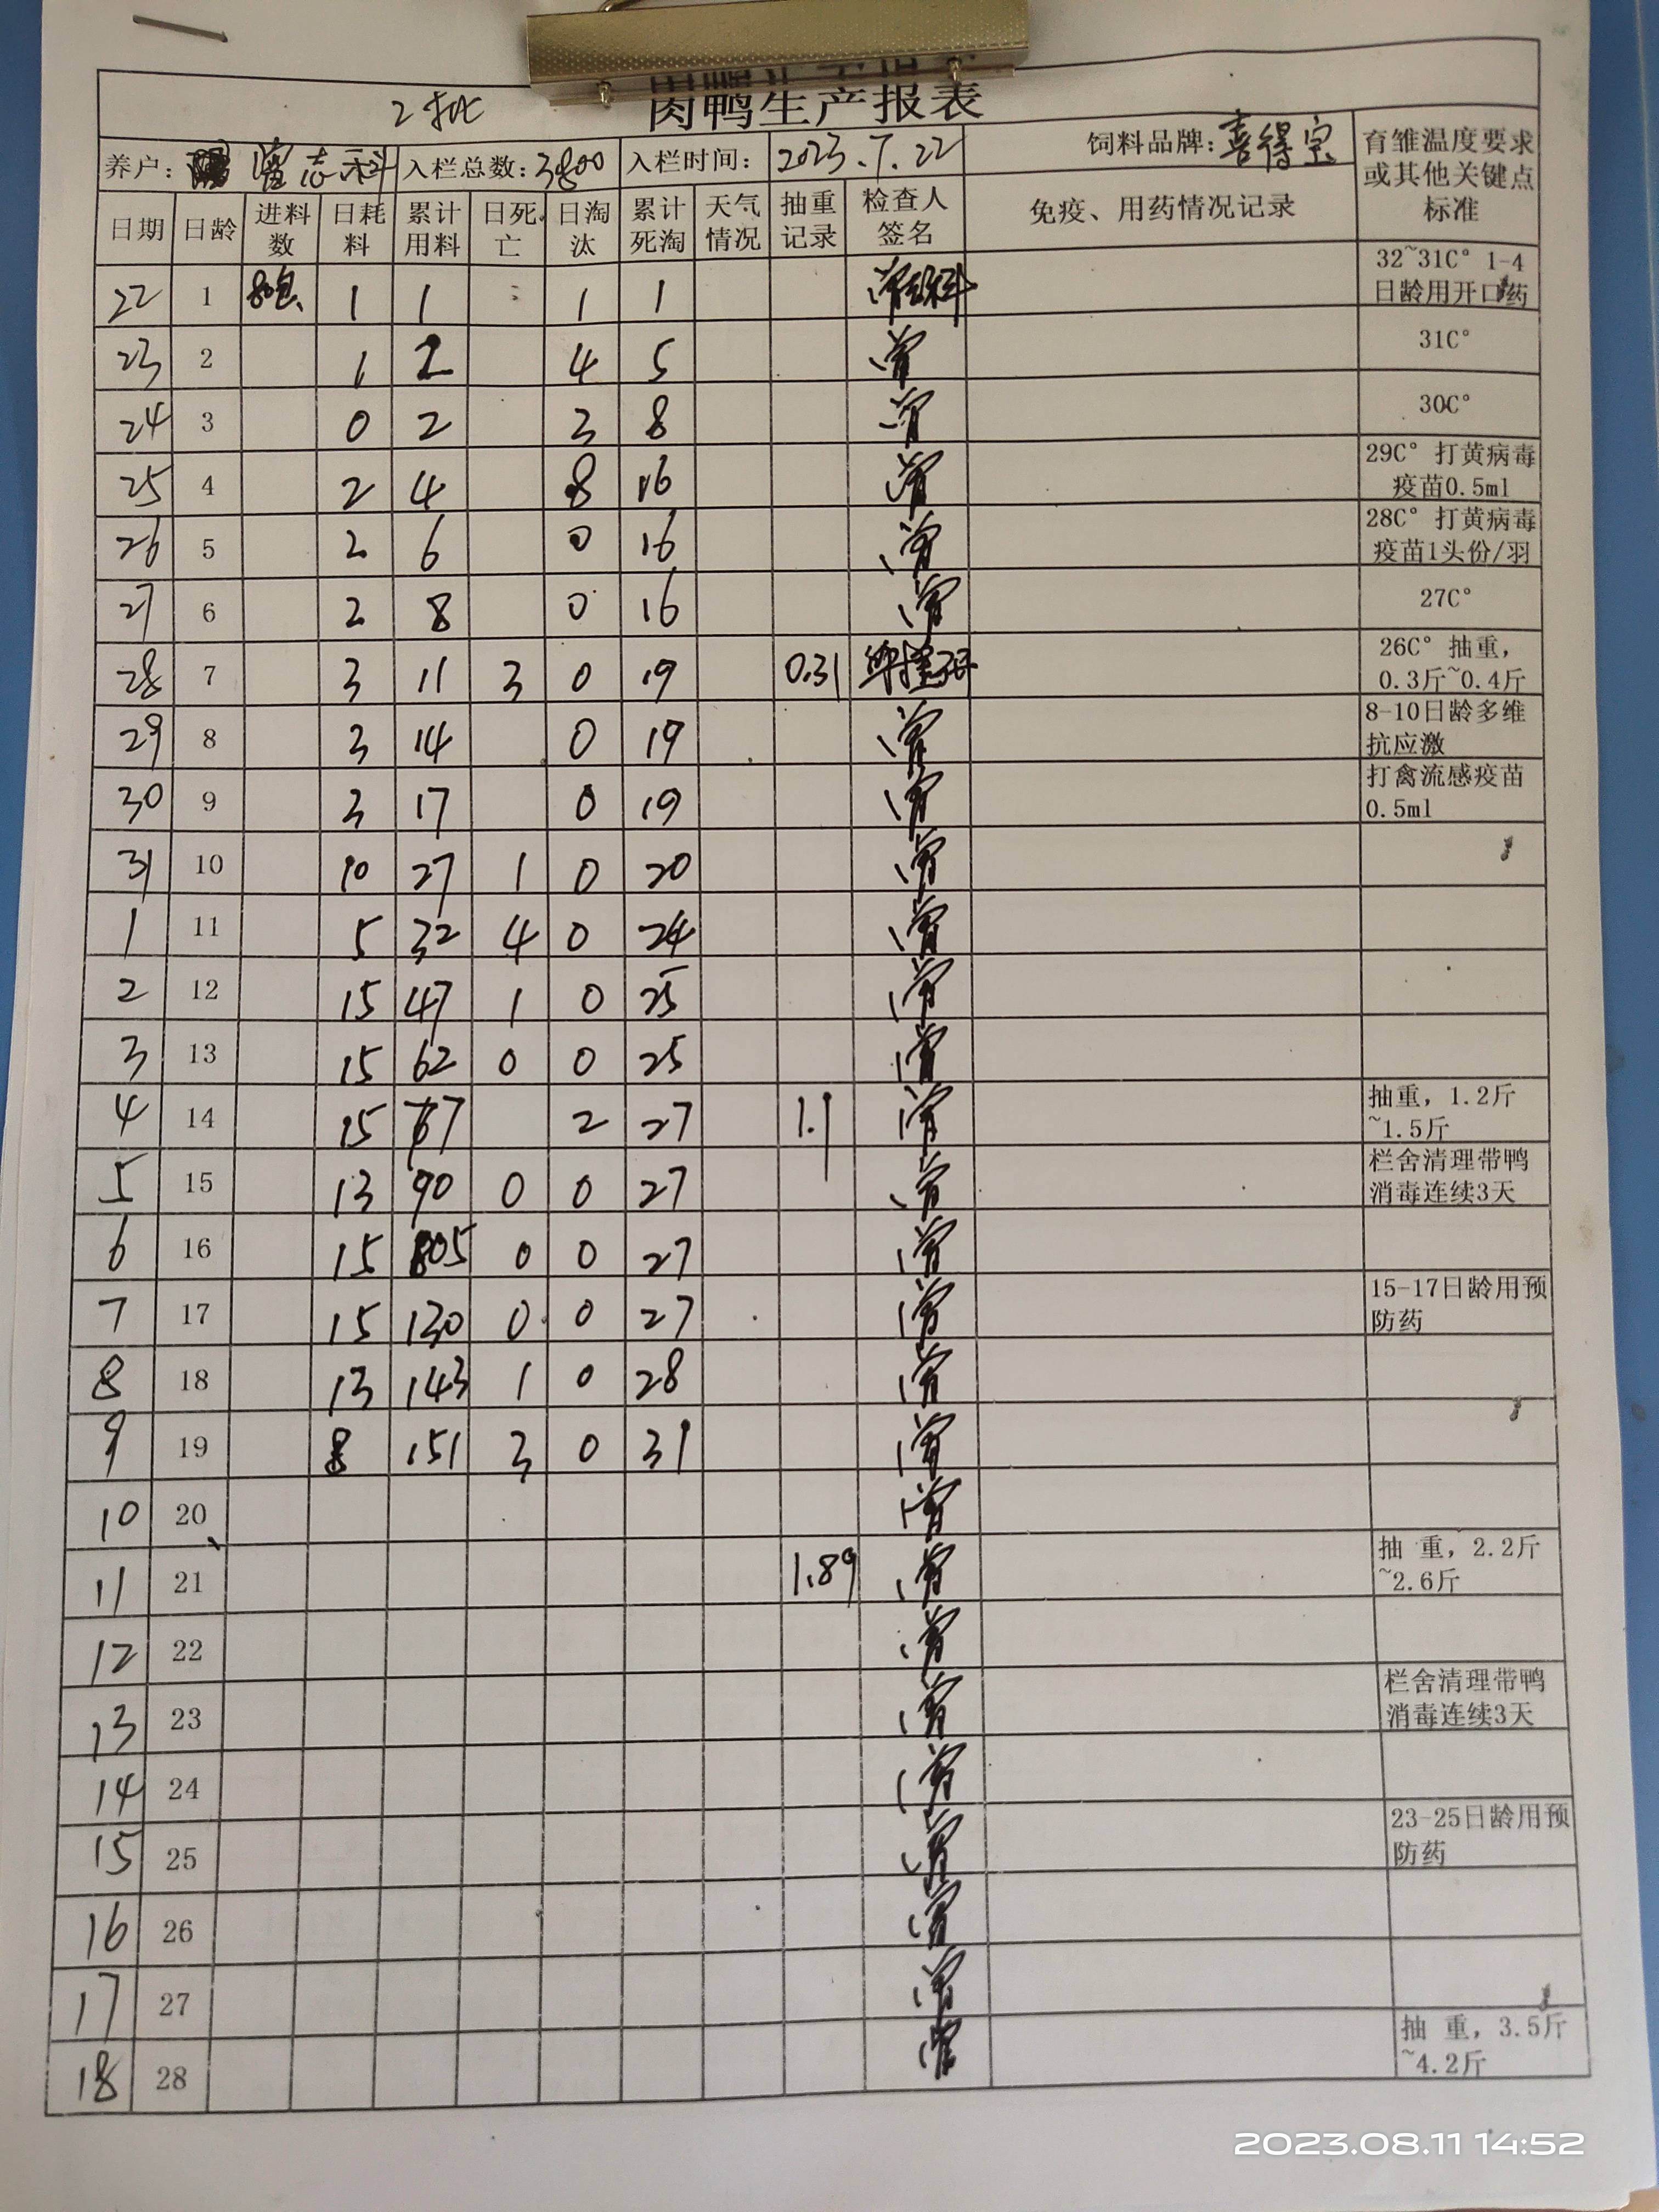 2批
肉鸭生产报表
养户: 曾志科 入栏总数:3800 入栏时间: 2023.7.22 饲料品牌:喜得宝 育雏温度要求或其他关键点标准
日期 日龄 进料数 日耗料 累计用料 日死亡 日淘汰 累计死淘 天气情况 抽重记录 检查人签名 免疫、用药情况记录
22 1 80包 1 1 1 1 曾志科 32~31C° 1-4日龄用开口药
23 2 1 2 4 5 曾 31C°
24 3 0 2 3 8 曾 30C°
25 4 2 4 8 16 曾 29C° 打黄病毒疫苗0.5ml
26 5 2 6 0 16 曾 28C° 打黄病毒疫苗1头份/羽
27 6 2 8 0 16 曾 27C°
28 7 3 11 3 0 19 0.31 26C° 抽重,0.3斤~0.4斤
29 8 3 14 0 19 曾 8-10日龄多维抗应激
30 9 3 17 0 19 曾 打禽流感疫苗0.5ml
31 10 10 27 1 0 20 曾
1 11 5 32 4 0 24 曾
2 12 15 47 1 0 25 曾
3 13 15 62 0 0 25 曾
4 14 15 77 2 27 1.1 曾 抽重, 1.2斤~1.5斤
5 15 13 90 0 0 27 曾 栏舍清理带鸭消毒连续3天
6 16 15 105 0 0 27 曾
7 17 15 130 0 0 27 曾 15-17日龄用预防药
8 18 13 143 1 0 28 曾
9 19 8 151 3 0 31 曾
10 20 曾
11 21 1.89 曾 抽 重, 2.2斤~2.6斤
12 22 曾
13 23 曾 栏舍清理带鸭消毒连续3天
14 24 曾
15 25 曾 23-25日龄用预防药
16 26 曾
17 27 曾
18 28 曾 抽 重, 3.5斤~4.2斤
2023.08.11 14:52